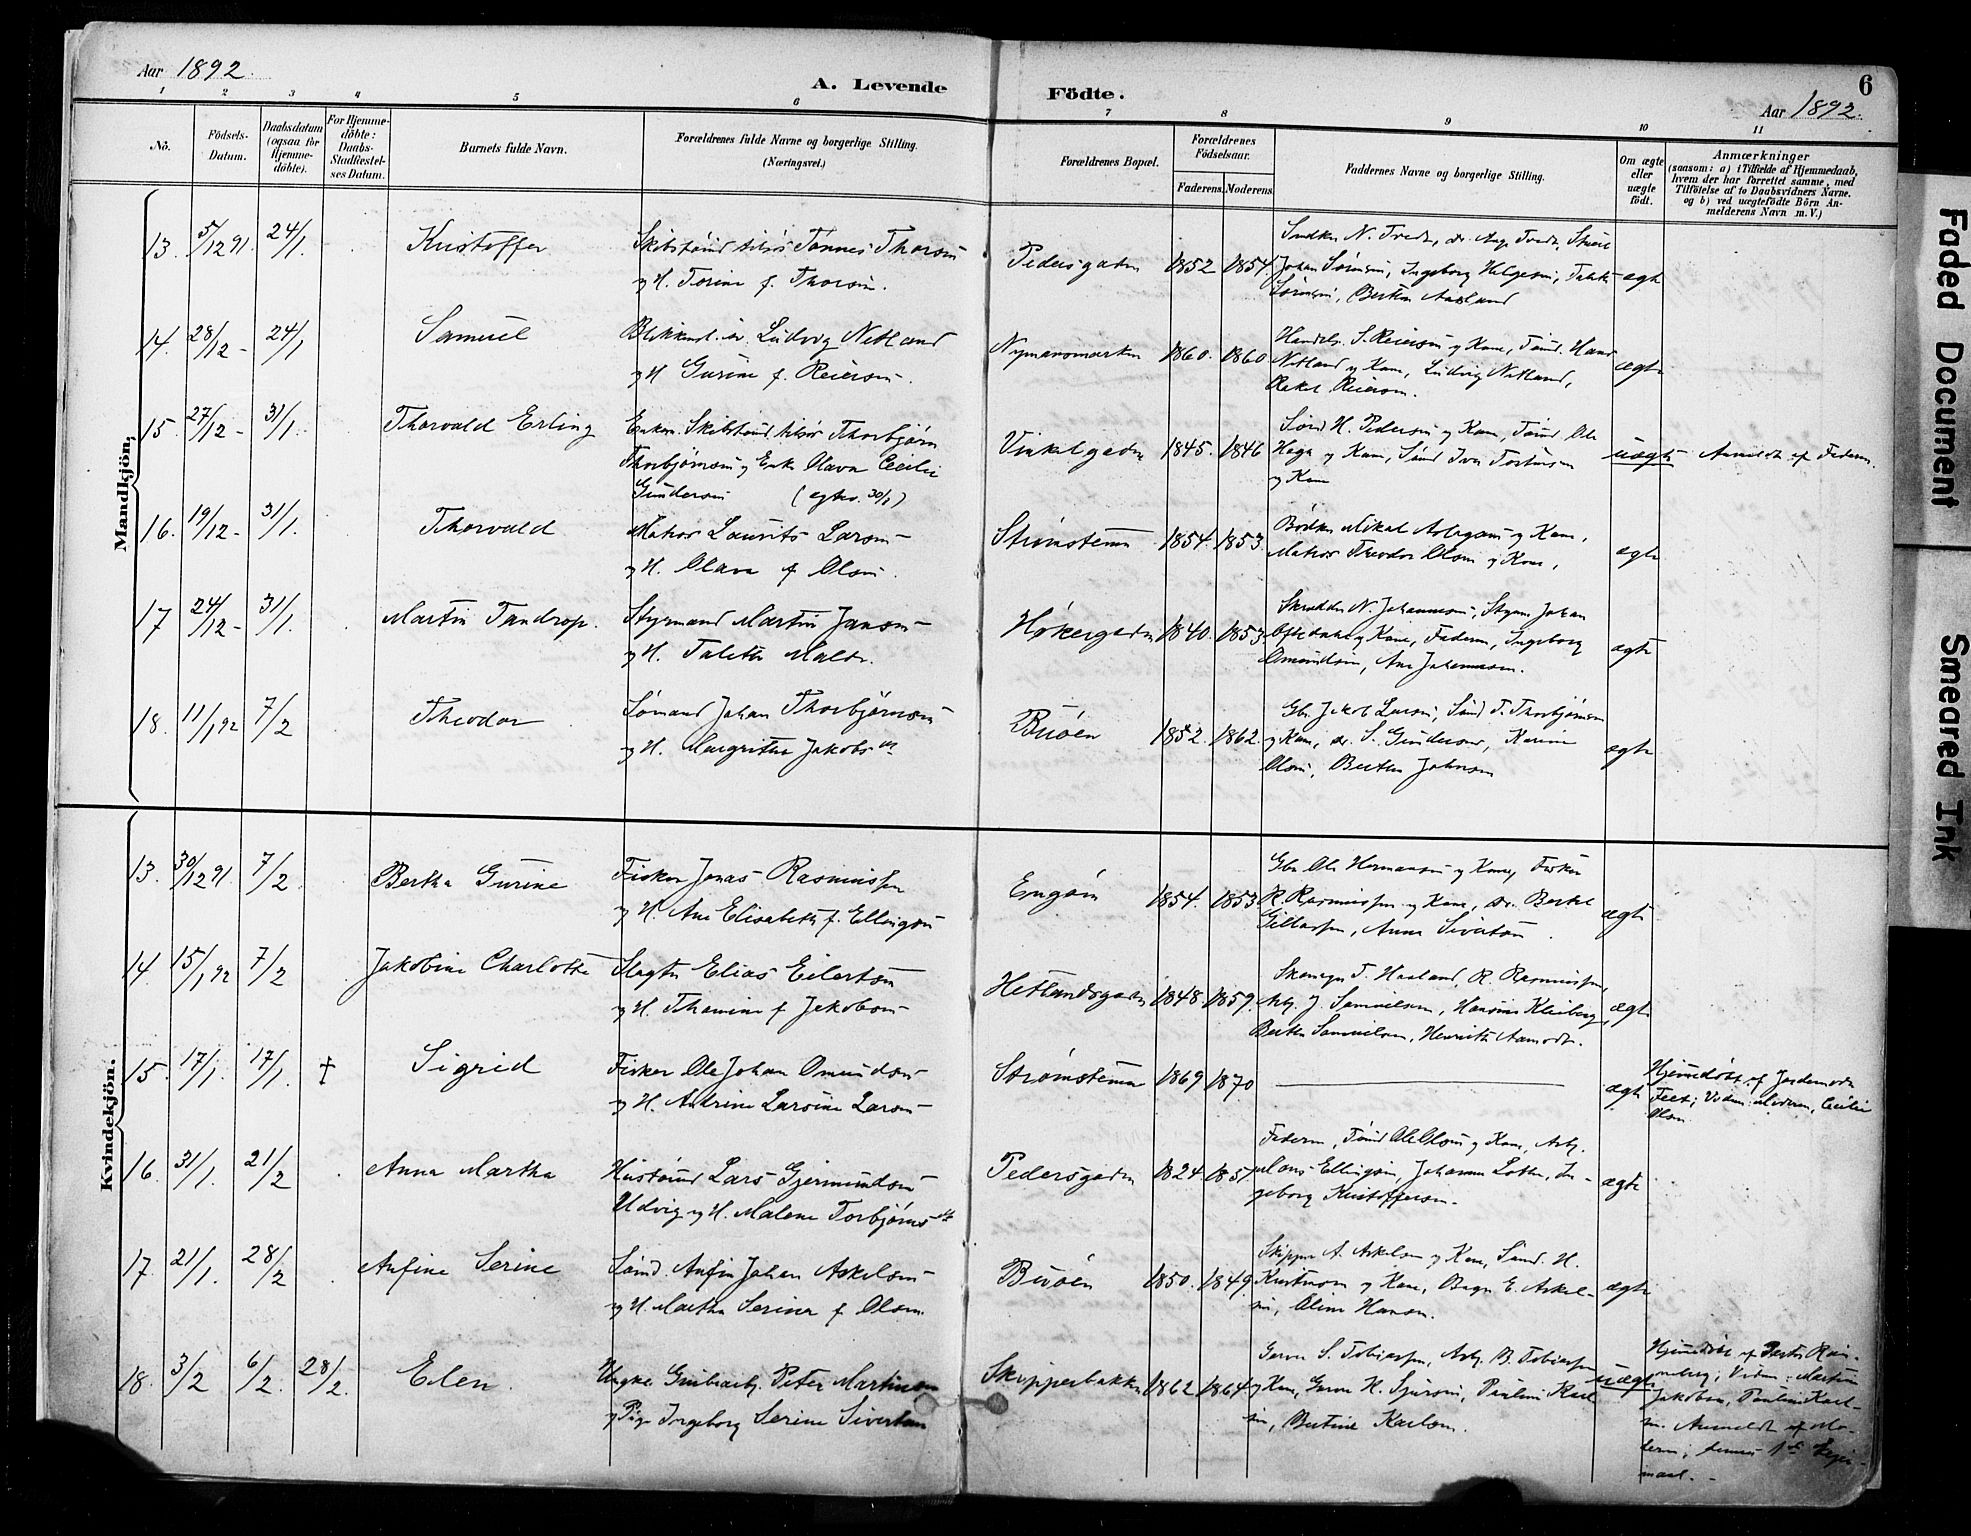 Aar 1892.
A. Levende Födte.
6
Aar 1892.
1 2 3 4 5 6 7 8 9 10 11
No.
Födsels-
Datum.
Daabsdatum
(ogsaa for
Hjemme-
döbte).
For Hjemme-
döbte:
Daabs-
Stadfæstel-
ses Datum.
Barnets fulde Navn.
Forældrenes fulde Navne og borgerlige Stilling.
(Næringsvei.)
Forældrenes Bopæl.
Forældrenes
Födselsaar.
Faderens. Moderens.
Faddernes Navne og borgerlige Stilling.
Om ægte
eller
uægte
födt.
Anmærkninger
(saasom: a) i Tilfælde af Hjemmedaab,
hvem der har forrettet samme, med
Tilföielse af to Daabsvidners Navne.
og b) ved uægtefödte Börn An-
melderens Navn m. V.)
Mandkjön,
13. 5/12 91. 24/1. Kristoffer
Tønnes Thorsen
og H. Torine f. Thorsen.
Pedersgaden 1852 1854
Johan Sørensen, Ingeborg Helgesen,
Sørensen, Bertha Aasland
ægte
14. 28/12 - 24/1 Samuel
Ludvig Netland
og H Gurine f. Reiersen.
Nymansmarken 1860. 1860
Handelsm. S. Reiersen og Kone, Tønd. Hans
Netland og Kone, Ludvig Netland,
Rakel Reiersen.
ægte
15. 27/12 - 31/1. Thorvald Erling
Enkem. Skibstønd. Thorbjørn
Thorbjørnsen og Enke Olava Cecilie
Gundersen (egtev. 30/1)
Vinkelgaden 1845. 1846
Sømd H. Pedersen og Kone, Tønd. Ole
Haga og Kone, Sømd Iver Torkelsen
og Kone
uægte
Anmeldt af Faderen.
16. 19/12 - 31/1. Thorvald
Matros Laurits Larsen
og H. Olava f Olsen.
Strømstenen 1854. 1853.
Bødker Mikal og Kone,
Matros Theodor Olsen og Kone,
ægte
17 24/12 - 31/1. Martin Tandrop.
Styrmand Martin Jansen
og H. Talette Malde.
Høkergaden 1840. 1853.
Skrædder N. Johannesen, Styrm. Johan
og Kone, Faderen, Ingeborg
Omundsen, Ane Johannesen.
ægte
18. 11/1 92 7/2 Theodor
Sømand Johan Thorbjørnsen
og H. Margritha Jakobs dtr
Buøen 1852. 1862.
Gbr. Jakob Larsen, Sømd T. Thorbjørnsen
og Kone, do. S. Gundersen, Karine
Olsen, Bertha Johnsen
ægte
Kvindekjön.
13. 30/12 91. 7/2 Bertha Gurine
Fisker Jonas Rasmussen
og H. Ane Elisabeth f. Ellingsen
Engøen 1854. 1853.
Gbr. Ole Hermansen og Kone, Fisker
R. Rasmussen og Kone, do. Bertel
Anna Sivertsen.
ægte
14. 15/1 92 7/2 Jakobine Charlotte
Slagter Elias Eilertsen
og H. Thomine f Jakobsen
Hetlandsgaden 1848. 1859.
T. Haaland, R. Rasmussen,
Arb. J. Samuelsen, Hansine Kleiberg,
Bertha Samuelsen, Henriette Aamodt.
ægte
15. 17/1. 17/1. † Sigrid
Fisker Ole Johan Omundsen
og H. Andrine Larsine Larsen
Strømstenen 1869 1870
ægte
Hjemmedøbt af Jordemoder
Feet; Vidner: Moderen, Cecilie
Olsen
16. 31/1. 21/2 Anna Martha
Hustømd Lars Gjermundsen
Udvig og H. Malene Torbjørns dtr
Pedersgaden 1824. 1851.
Faderen, Tømd Ole Olsen og Kone, Arb.
Mons Ellingsen, Johanne Lothe, In-
geborg Kristoffersen.
ægte
17. 21/1. 28/2 Anfine Serine
Sømd. Anfin Johan Askelsen
og H. Martha Serina f Olsen.
Buøen 1850. 1849.
Skipper A. Askelsen og Kone, Sømd. H.
Kristensen og Kone, E. Askel-
sen, Oline Hansen.
ægte
18. 3/2 6/2. 28/2. Elen.
Ungkar Peter Martinsen
og Pige Ingeborg Serine Sivertsen
Skipperbakken 1862 1864
Garver S. Tobiassen, Arb. B. Tobiassen
og Kone, Garver H. Sjursen, Pauline Karl-
sen, Bertine Karlsen.
uægte
Hjemmedøbt af
Vidner: Martin
Jakobsen, Pauline Karl-
sen. Anmeldt af Mo-
deren;
Faded Document
Smeared Ink